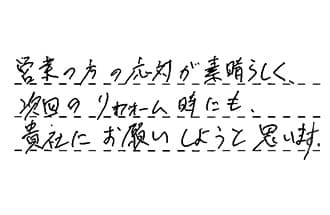 営業の方の応対が素晴らしく、
次回のリフォーム時にも、
貴社にお願いしようと思います。